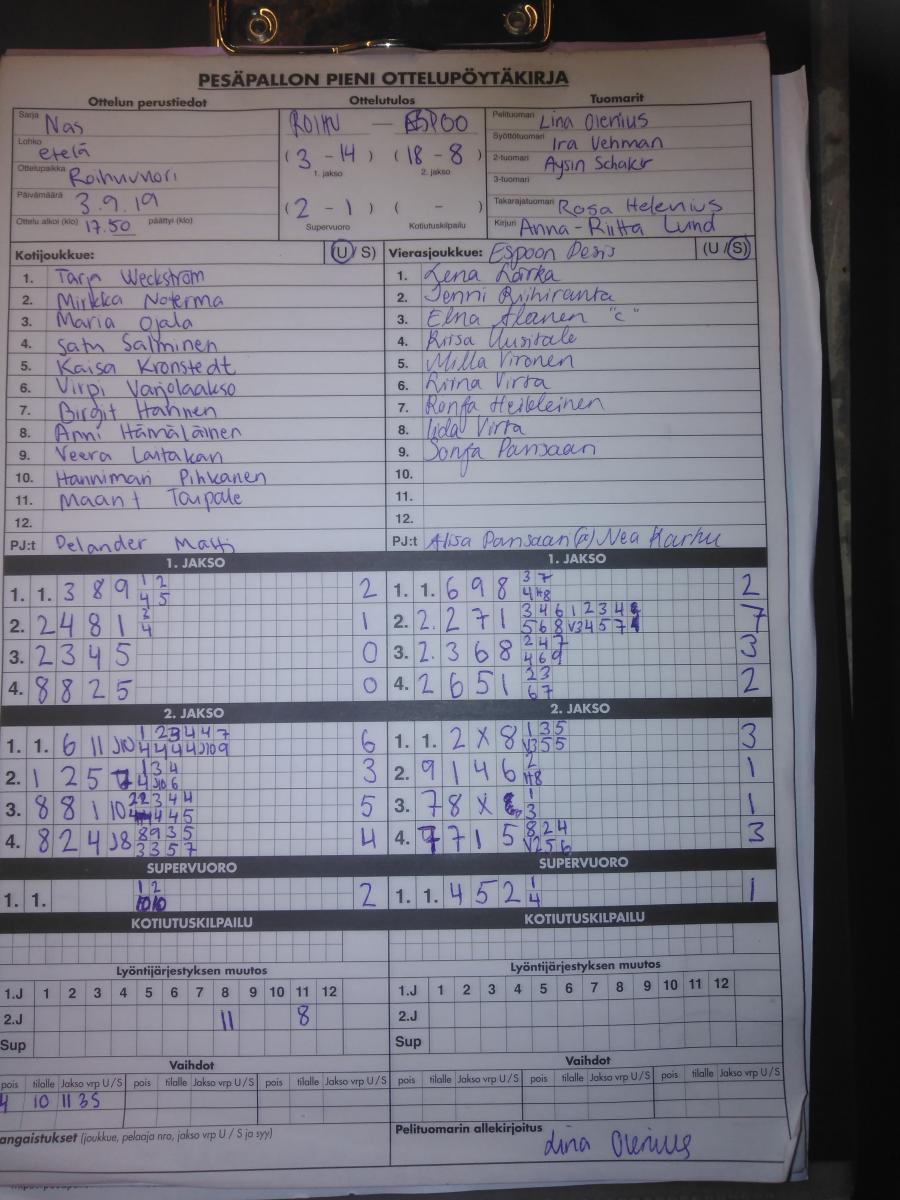 PESÄPALLON PIENI OTTELUPÖYTÄKIRJA
Ottelun perustiedot
Ottelutulos
Tuomarit
Sarja Nas
Lohko etelä
Ottelupaikka Roihuvuori
Päivämäärä 3.9.19
Ottelu alkoi (klo) 17.50 päättyi (klo)
ROIHU — ESPOO
(3 - 14) (18 - 8)
1. jakso 2. jakso
(2 - 1) ( - )
Supervuoro Kotiutuskilpailu
Pelituomari Lina Olenius
Syöttötuomari Ira Vehman
2-tuomari Aysin Schakir
3-tuomari
Takarajatuomari Rosa Helenius
Kirjuri Anna-Riitta Lund
Kotijoukkue: (U/S)
1. Tarja Weckström
2. Mirkka Noterma
3. Maria Ojala
4. Satu Salminen
5. Kaisa Kronstedt
6. Virpi Varjolaakso
7. Birgit Hahnen
8. Anni Hämäläinen
9. Veera Laitakari
10. Hannimari Pihkanen
11. Maarit Taipale
12.
PJ:t Delander Matti
Vierasjoukkue: Espoon Pesis (U/S)
1. Lena Lörkä
2. Jenni Riihiranta
3. Elna Alanen "c"
4. Riisa Uusitale
5. Milla Vironen
6. Riina Virta
7. Ronja Heikkeinen
8. Iida Virta
9. Sonja Pansaan
10.
11.
12.
PJ:t Alisa Pansaan (P) Nea Karhu
1. JAKSO
1. 1. 3 8 9 1 2 2
4 5
2. 2 4 8 1 3 1
4
3. 2 3 4 5 0
4. 8 8 2 5 0
1. JAKSO
1. 1. 6 9 8 3 7 2
4 H8
2. 2. 2 7 1 3 4 6 1 2 3 4 7
5 6 8 V3 4 5 7
3. 2. 3 6 8 2 4 7 3
4 6 9
4. 2 6 5 1 2 3 2
6 7
2. JAKSO
1. 1. 6 11 J10 1 2 3 4 4 7 6
4 4 4 4 J10 9
2. 1 2 5 7 1 3 4 3
4 J10 6
3. 8 8 1 10 2 2 3 4 4 5
4 4 4 5
4. 8 2 4 J8 8 9 3 5 4
3 3 5 7
2. JAKSO
1. 1. 2 X 8 1 3 5 3
V3 5 5
2. 9 1 4 6 2 1
H8
3. 7 8 X 1 1
3
4. 7 7 1 5 8 2 4 3
V2 5 6
SUPERVUORO
1. 1. 1 2 2
10 10
SUPERVUORO
1. 1. 4 5 2 1 1
4
KOTIUTUSKILPAILU
KOTIUTUSKILPAILU
Lyöntijärjestyksen muutos
1.J 1 2 3 4 5 6 7 8 9 10 11 12
2.J 11 8
Sup
Lyöntijärjestyksen muutos
1.J 1 2 3 4 5 6 7 8 9 10 11 12
2.J
Sup
Vaihdot
pois tilalle Jakso vrp U/S pois tilalle Jakso vrp U/S pois tilalle Jakso vrp U/S
4 10 II 3S
Vaihdot
pois tilalle Jakso vrp U/S pois tilalle Jakso vrp U/S pois tilalle Jakso vrp U/S
angaistukset (joukkue, pelaaja nro, jakso vrp U / S ja syy)
Pelituomarin allekirjoitus
Lina Olenius